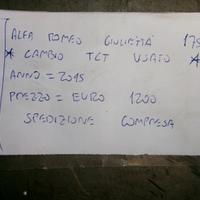 ALFA ROMEO GIULIETTA 175
* CAMBIO TCT USATO *
ANNO = 2015
PREZZO = EURO 1200
SPEDIZIONE COMPRESA